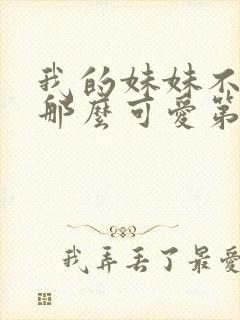 我的妹妹不
那麼可愛第
我弄丟了最愛